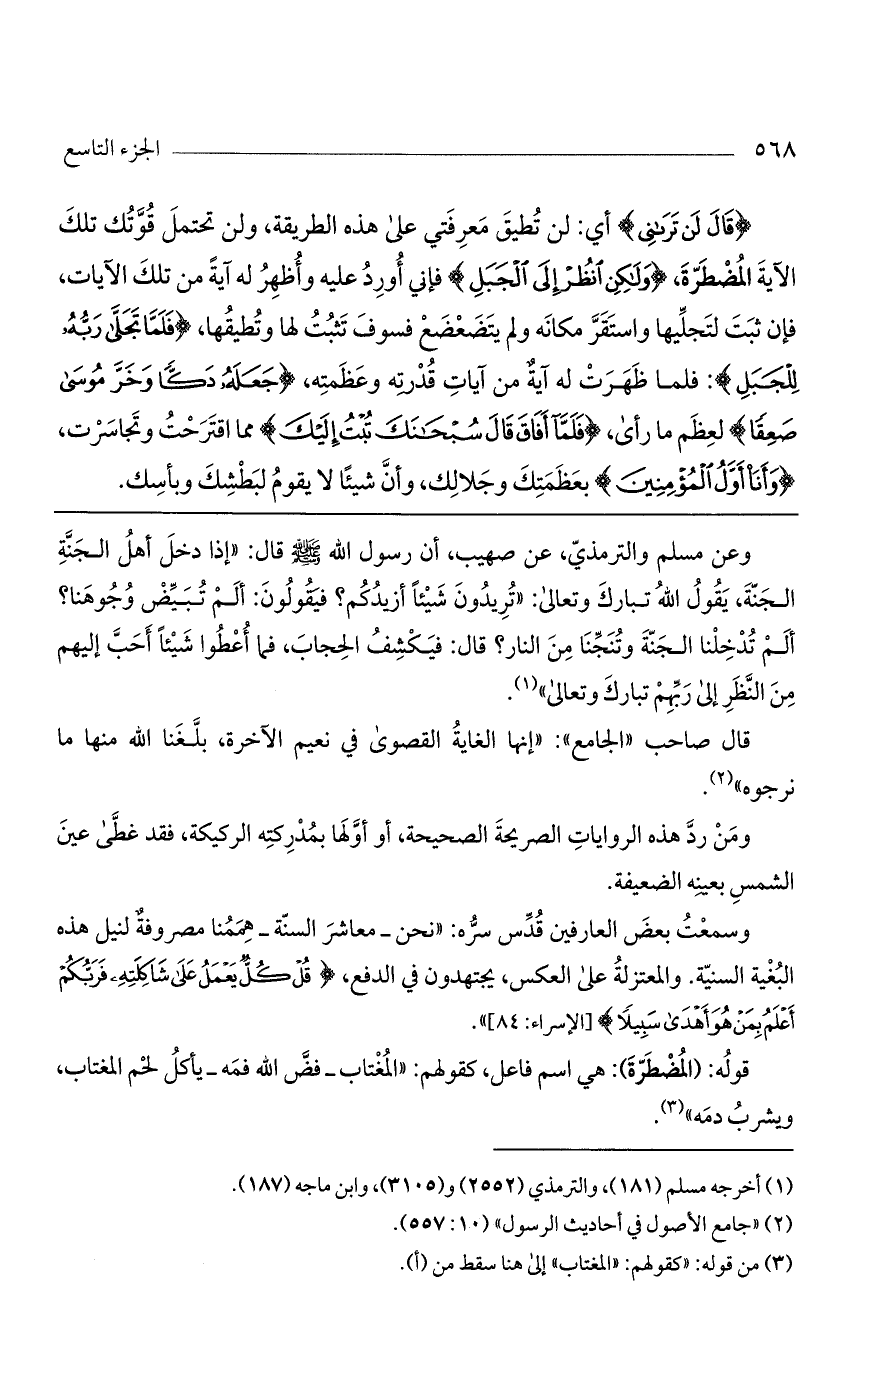 ٥٦٨ ــــــــــــــــــــــــــــــــــــــــ الجزء التاسع
﴿قَالَ لَن تَرَىٰنِى﴾ أي: لن تُطيقَ مَعرِفَتي علىٰ هذه الطريقة، ولن تحتملَ قُوَّتُك تلكَ
الآيةَ المُضْطَرّةَ، ﴿وَلَـٰكِنِ ٱنظُرْ إِلَى ٱلْجَبَلِ﴾ فإني أُورِدُ عليه وأُظهِرُ له آيةً من تلكَ الآيات،
فإن ثبَتَ لتَجلِّيها واستَقَرَّ مكانَه ولم يتَضَعْضَعْ فسوفَ تَثبُتُ لها وتُطيقُها، ﴿فَلَمَّا تَجَلَّىٰ رَبُّهُۥ
لِلْجَبَلِ﴾: فلما ظَهَرَتْ له آيةٌ من آياتِ قُدْرتِه وعَظَمتِه، ﴿جَعَلَهُۥ دَكًّا وَخَرَّ مُوسَىٰ
صَعِقًا﴾ لعِظَم ما رأىٰ، ﴿فَلَمَّآ أَفَاقَ قَالَ سُبْحَـٰنَكَ تُبْتُ إِلَيْكَ﴾ مما اقتَرَحْتُ وتَجاسَرْت،
﴿وَأَنَا۠ أَوَّلُ ٱلْمُؤْمِنِينَ﴾ بعَظَمَتِكَ وجَلالِك، وأنَّ شيئًا لا يقومُ لبَطْشِكَ وبأسِك.
وعن مسلم والترمذيّ، عن صهيب، أن رسول الله ﷺ قال: «إذا دخلَ أهلُ الجَنَّةِ
الجَنّةَ، يَقُولُ اللهُ تباركَ وتعالىٰ: «تُرِيدُونَ شَيْئاً أزيدُكُم؟ فيَقُولُونَ: أَلَمْ تُبَيِّضْ وُجُوهَنا؟
أَلَمْ تُدْخِلْنا الجَنّةَ وتُنَجِّنَا مِنَ النار؟ قال: فيَكْشِفُ الحِجابَ، فما أُعْطُوا شَيْئاً أَحَبَّ إليهم
مِنَ النَّظَرِ إلىٰ رَبِّهِمْ تباركَ وتعالىٰ»(١).
قال صاحب «الجامع»: «إنها الغايةُ القصوىٰ في نعيم الآخرة، بلَّغَنا الله منها ما
نرجوه»(٢).
ومَنْ ردَّ هذه الرواياتِ الصريحةَ الصحيحة، أو أوَّلَها بمُدْرِكتِه الركيكة، فقد غطَّىٰ عينَ
الشمسِ بعينِه الضعيفة.
وسمعْتُ بعضَ العارفين قُدِّس سرُّه: «نحن ـ معاشرَ السنّة ـ هِمَمُنا مصروفةٌ لنيل هذه
البُغْية السنيّة. والمعتزلةُ علىٰ العكس، يجتهدون في الدفع، ﴿قُلْ كُلٌّ يَعْمَلُ عَلَىٰ شَاكِلَتِهِۦ فَرَبُّكُمْ
أَعْلَمُ بِمَنْ هُوَ أَهْدَىٰ سَبِيلًا﴾ [الإسراء: ٨٤]».
قولُه: (المُضْطَرّةَ): هي اسم فاعل، كقولهم: «المُغْتاب ـ فضَّ الله فمَه ـ يأكلُ لحْم المغتاب،
ويشربُ دمَه»(٣).
(١) أخرجه مسلم (١٨١)، والترمذي (٢٥٥٢) و(٣١٠٥)، وابن ماجه (١٨٧).
(٢) «جامع الأصول في أحاديث الرسول» (١٠: ٥٥٧).
(٣) من قوله: «كقولهم: «المغتاب» إلىٰ هنا سقط من (أ).